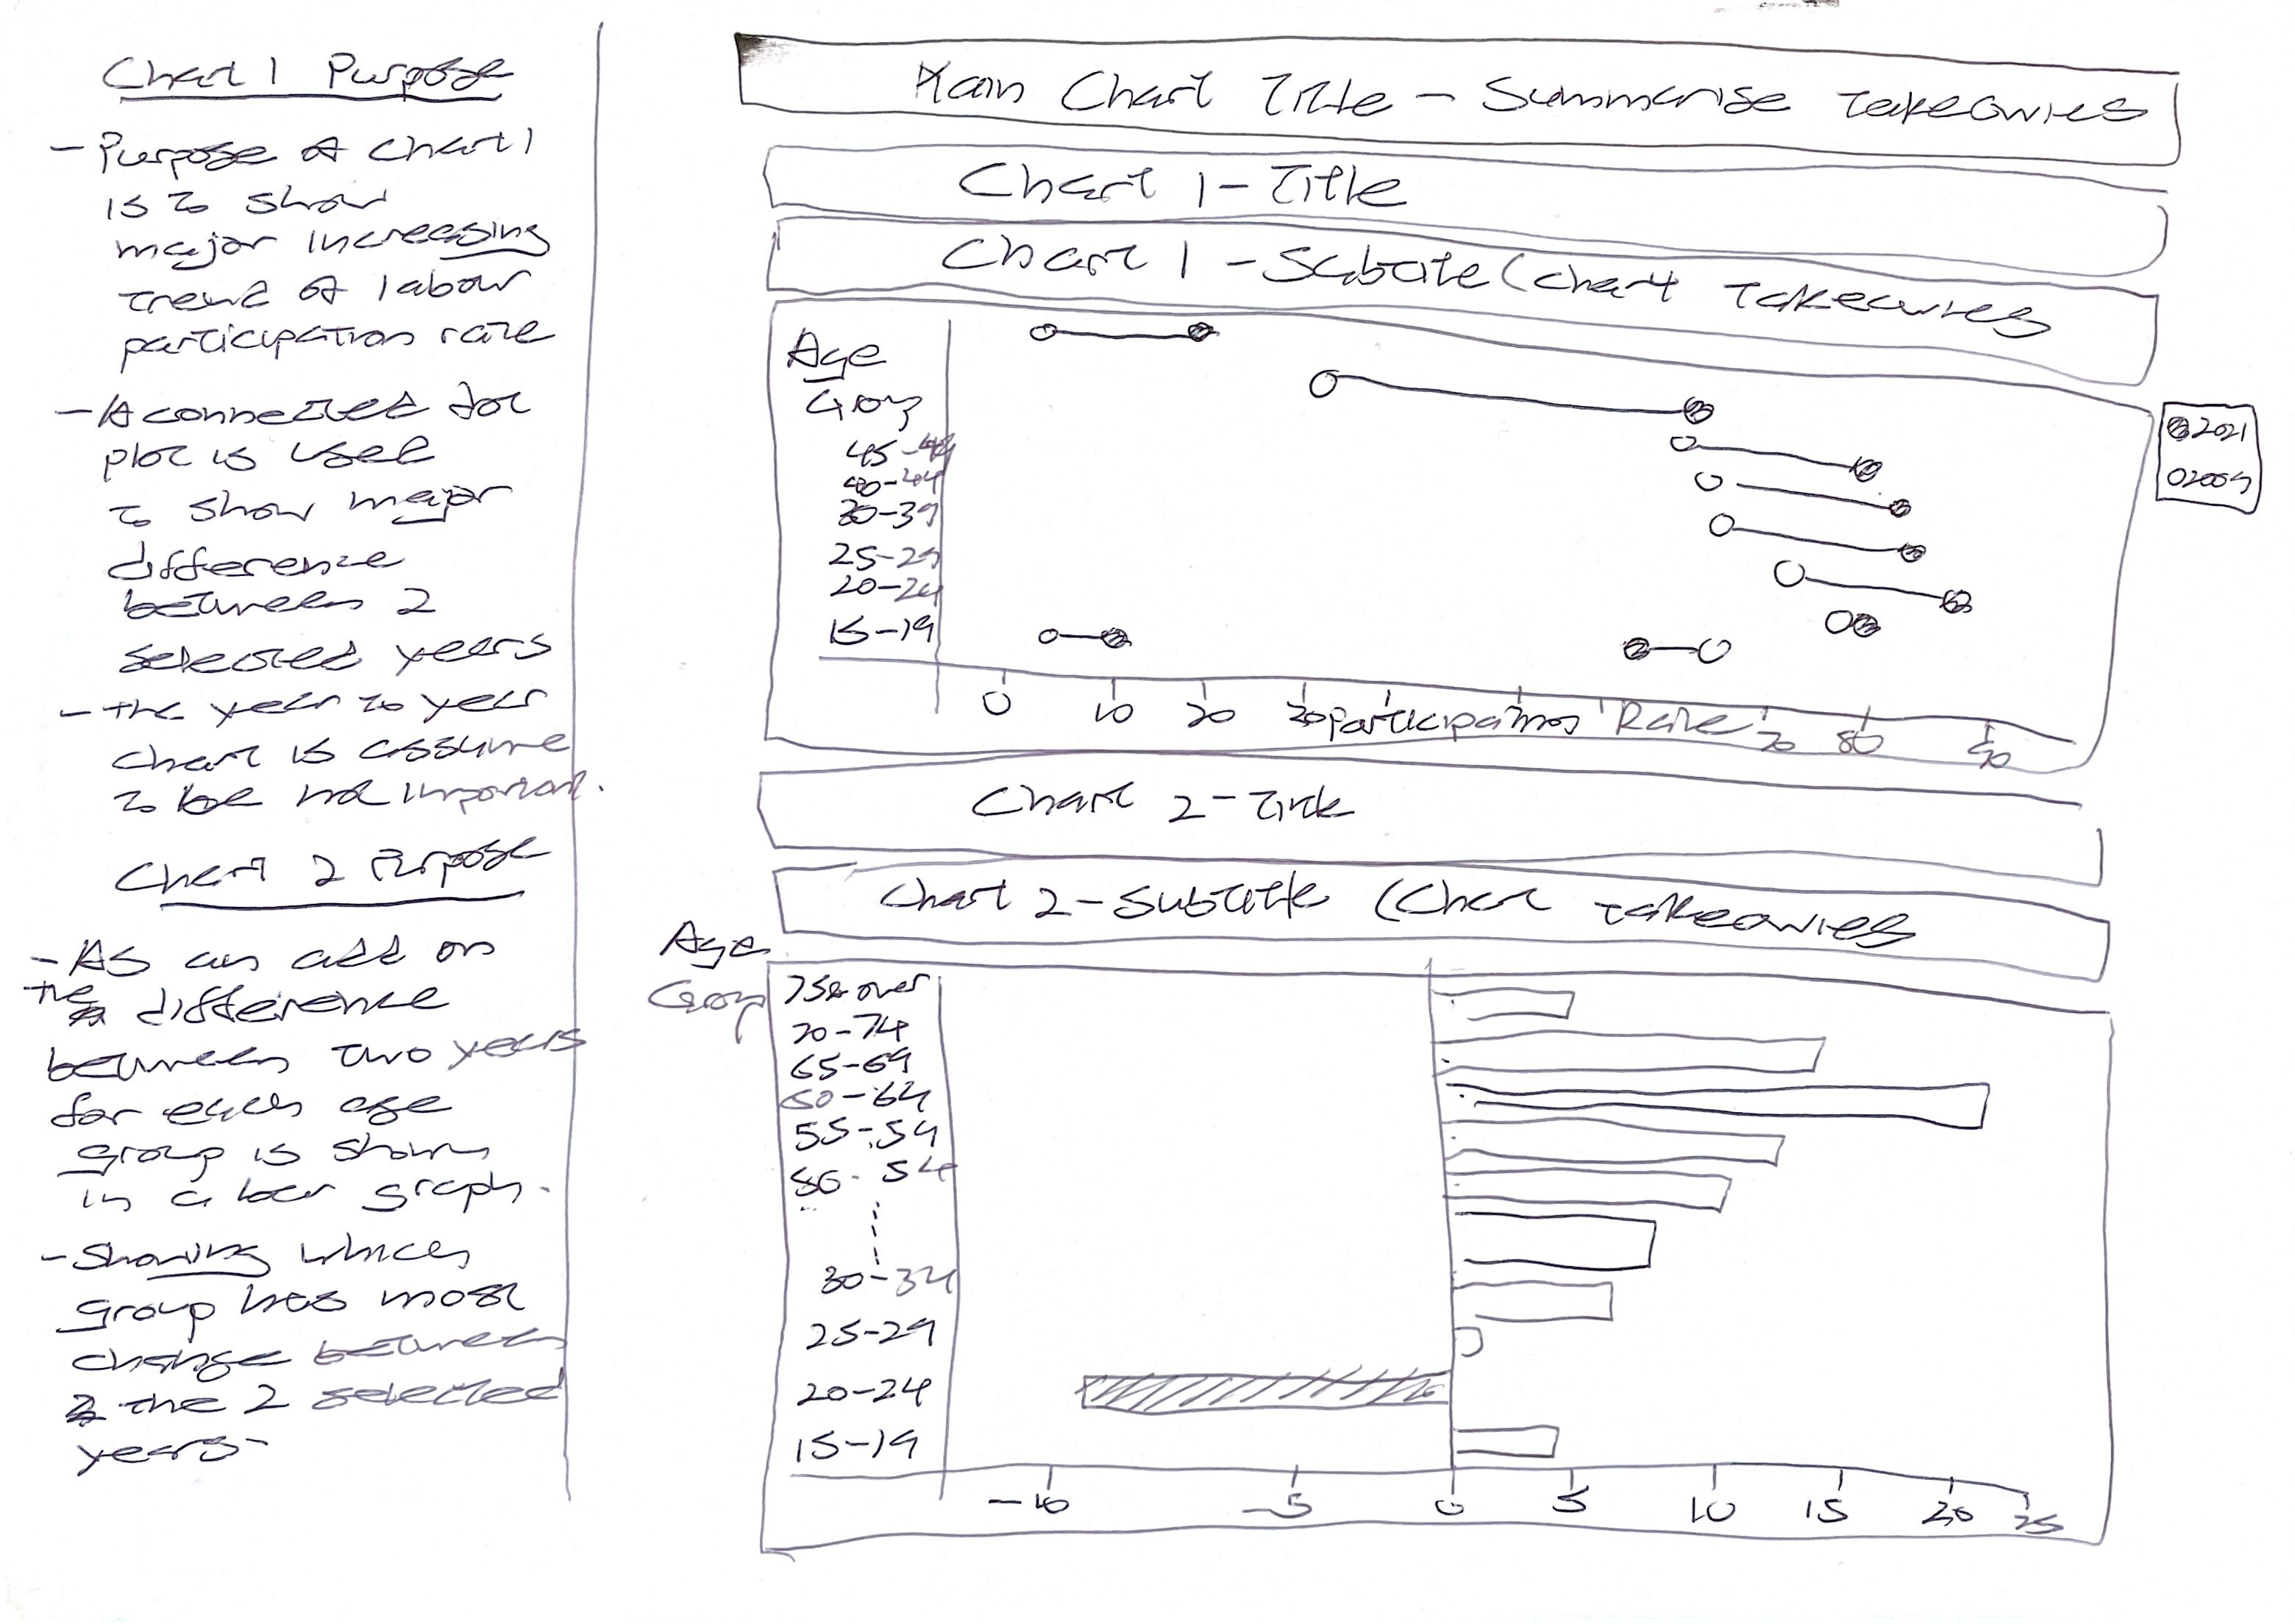 Chart 1 Purpose
- Purpose of chart 1
is to show
major increasing
trend of labour
participation rate
- A connected dot
plot is used
to show major
difference
between 2
selected years
- the year to year
chart is assume
to be not important.
Chart 2 Purpose
- As an add on
the difference
between two years
for each age
group is shown
in a bar graph.
- Showing which
group has most
change between
the 2 selected
years-
Main Chart Title - Summarise takeawies
Chart 1 - Title
Chart 1 - Subtitle (Chart takeawies
Age
Group
45-49
40-44
30-39
25-29
20-24
15-19
0 10 20 30 participations Rate 70 80 90
2021
2009
Chart 2 - Title
Chart 2 - Subtitle (Chart takeawies
Age
Group
75& over
70-74
65-69
60-64
55-59
50-54
30-34
25-29
20-24
15-19
-10 -5 0 5 10 15 20 25